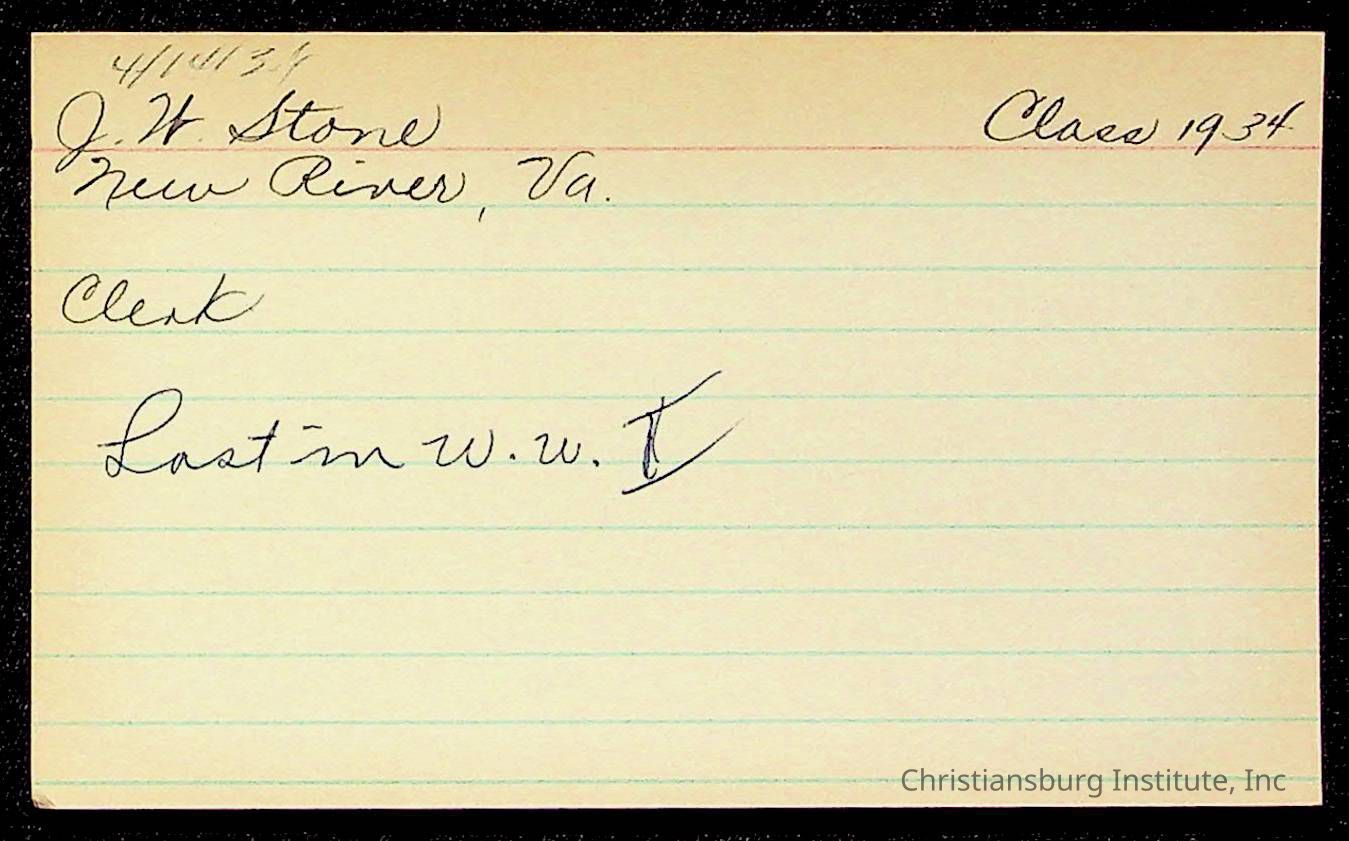 4/14/34
J. W. Stone
Class 1934
New River, Va.
Clerk
Lost in W. W. II
Christiansburg Institute, Inc